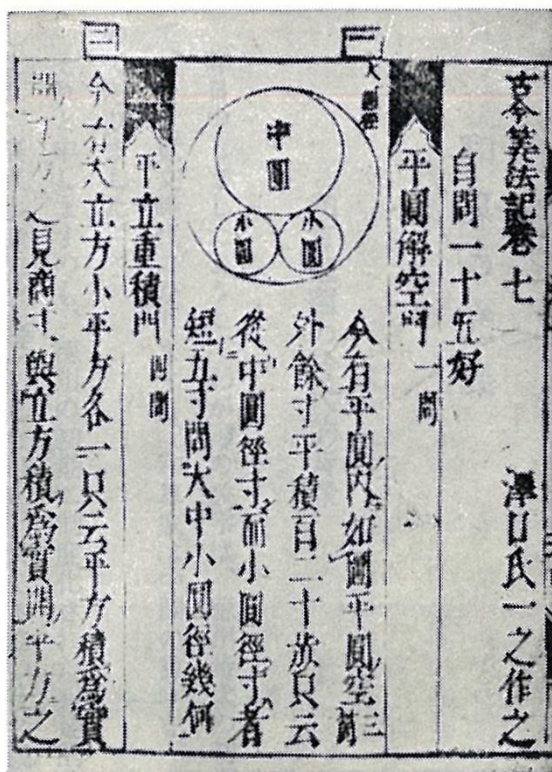 古今算法記卷七 澤口氏一之作之
自問一十五好
一
平圓解空門 一問
大圓徑
中圓
小圓
小圓
今有平圓內如圖平圓空三箇
外餘寸平積百二十歩只云
從中圓徑寸而小圓徑寸者
短五寸問大中小圓徑幾何
二
平立重積門 四問
今有大立方小平方各一只云平方積爲實
開平方之見商寸與立方積爲實開平方之